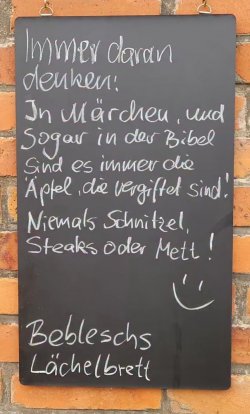 Immer daran
denken:
In Märchen, und
Sogar in der Bibel
Sind es immer die
Äpfel, die vergiftet sind!
Niemals Schnitzel,
Steaks oder Mett!
Bebleschs
Lächelbrett